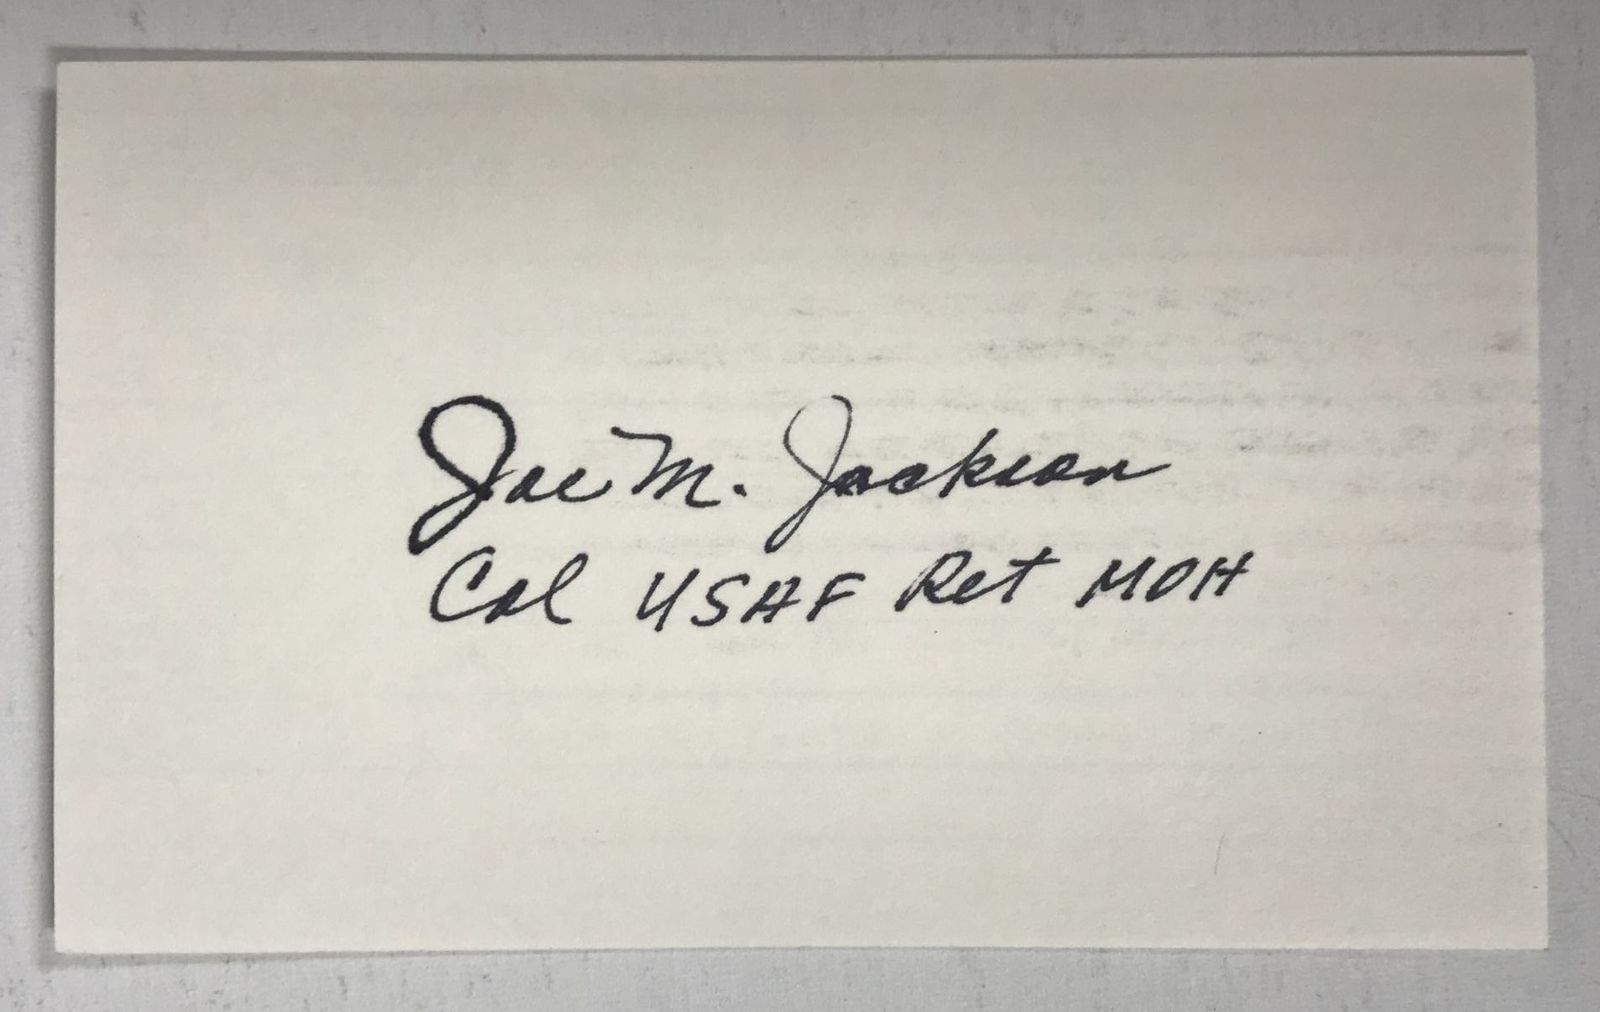 Joe M. Jackson
Col USAF Ret MOH